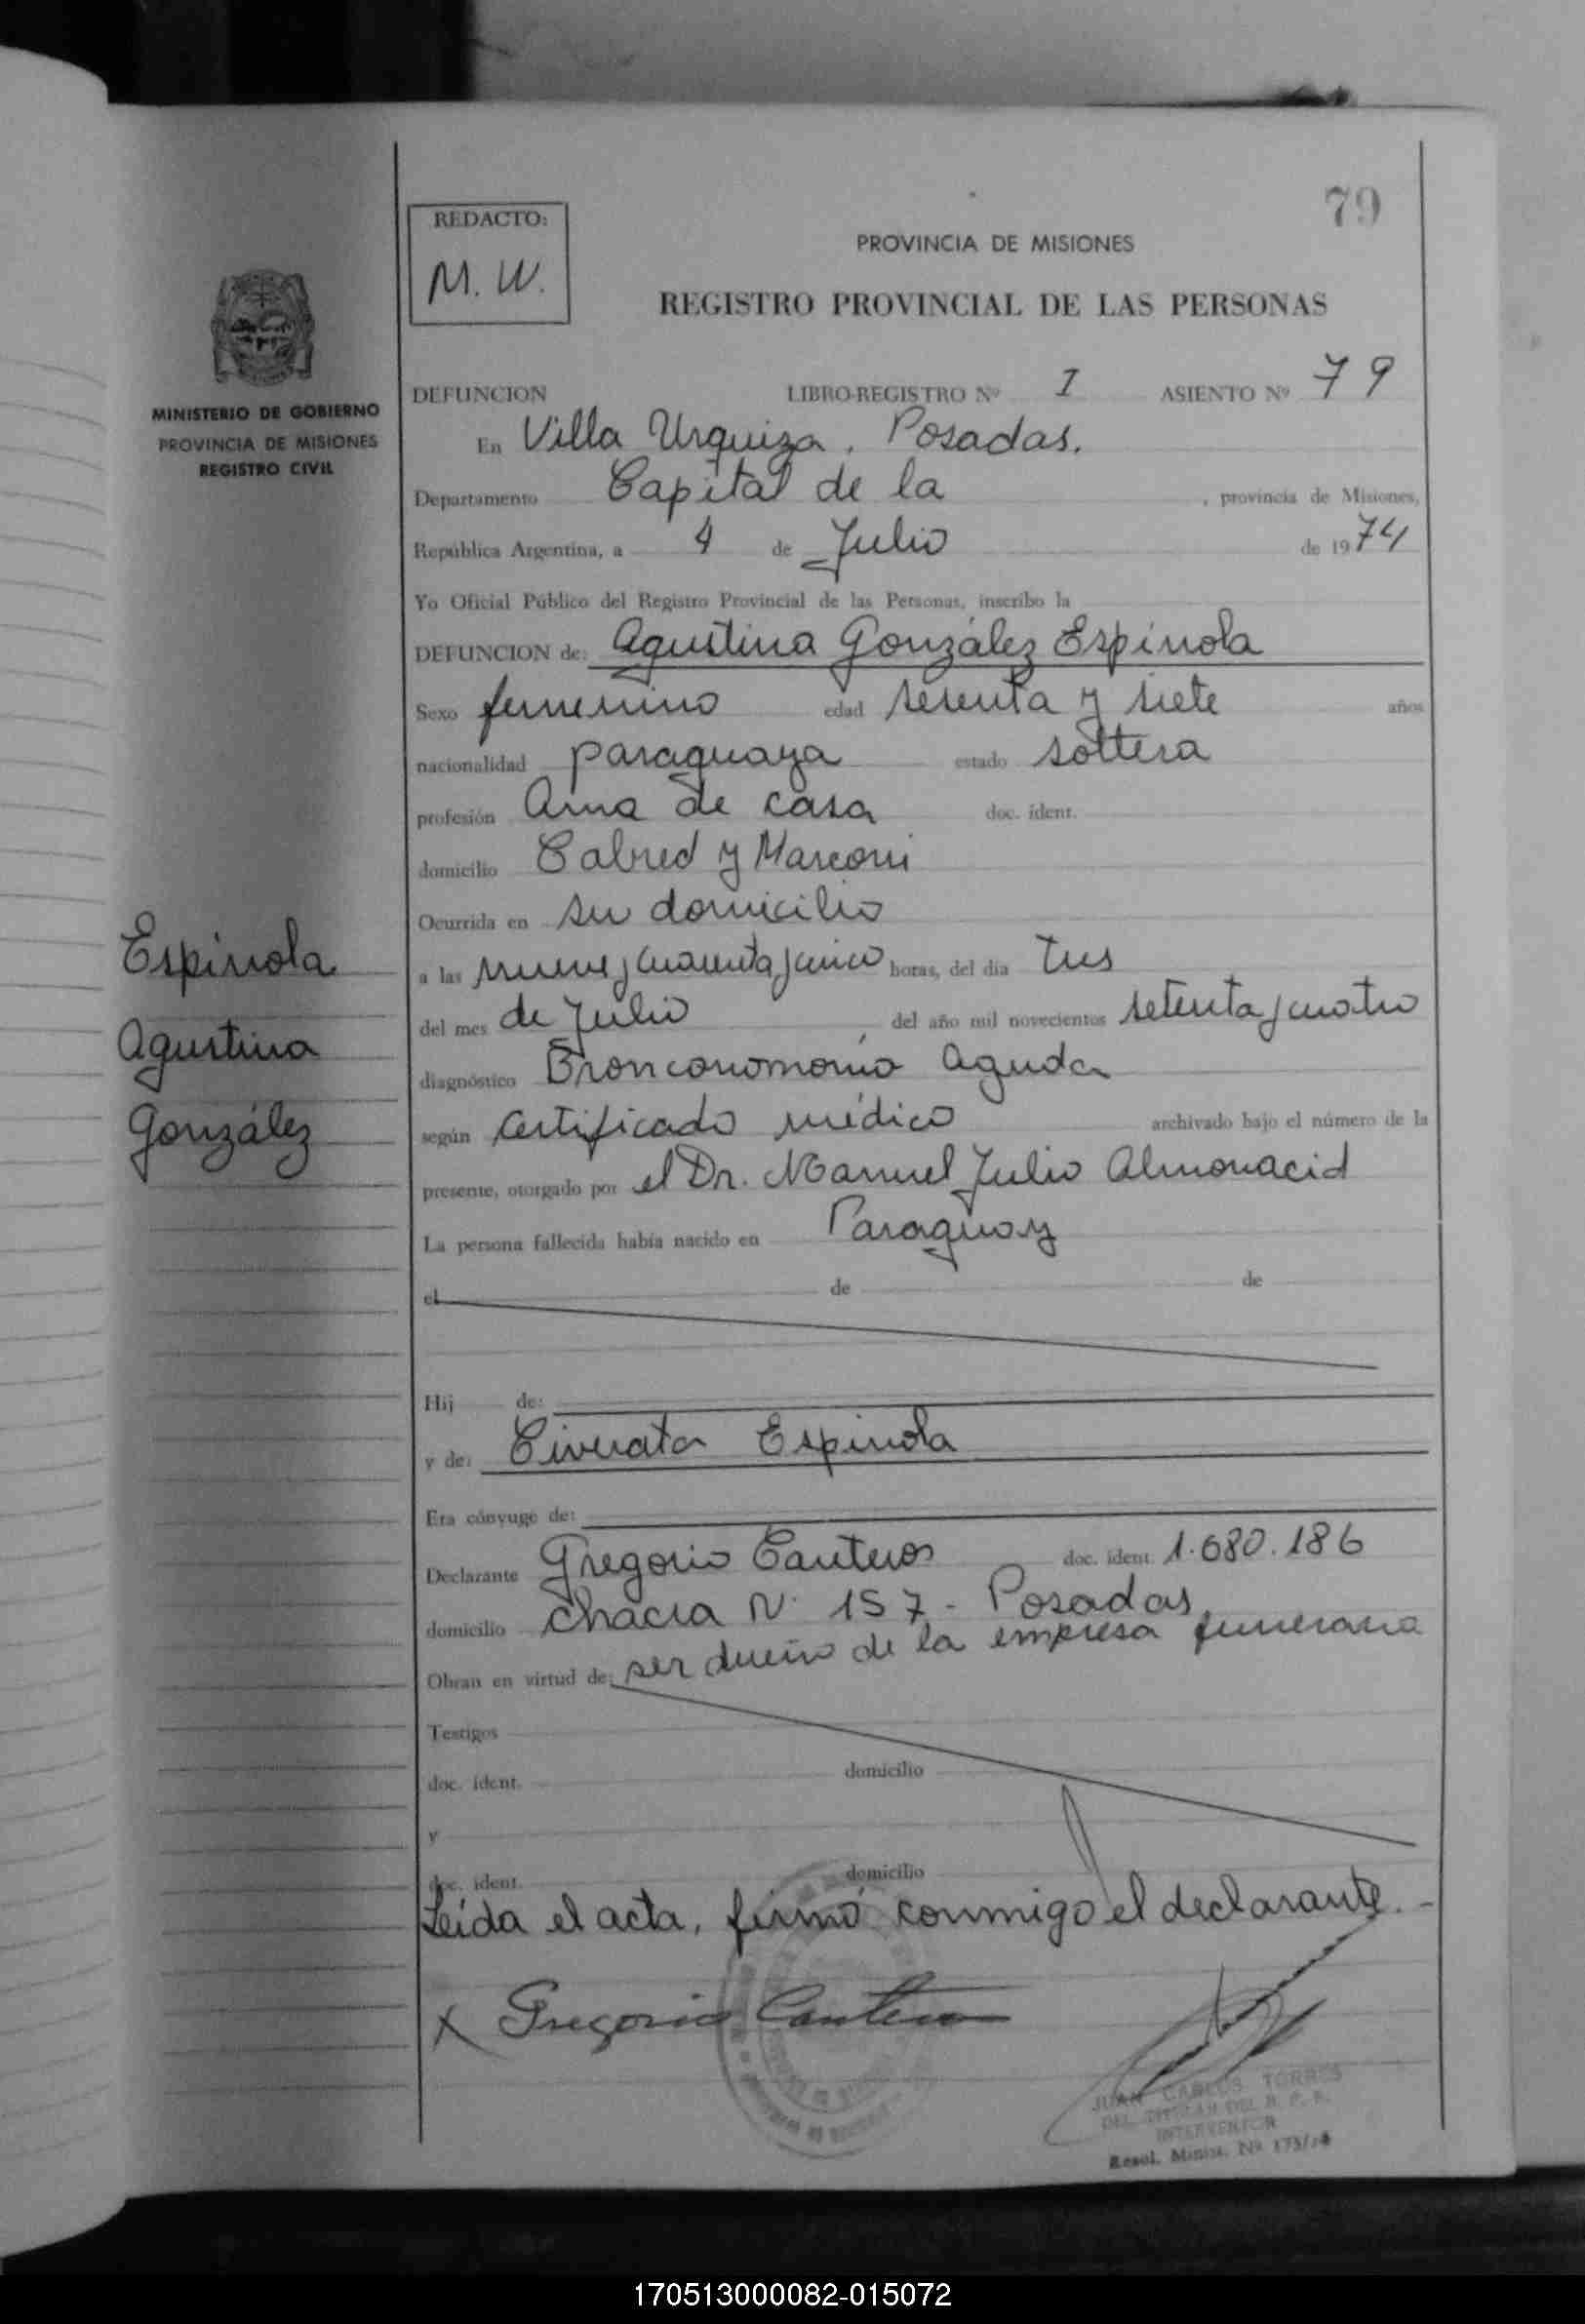 79
REDACTO:
M. W.
PROVINCIA DE MISIONES
REGISTRO PROVINCIAL DE LAS PERSONAS
MINISTERIO DE GOBIERNO
PROVINCIA DE MISIONES
REGISTRO CIVIL
DEFUNCION LIBRO-REGISTRO Nº I ASIENTO Nº 79
En Villa Urquiza, Posadas.
Departamento Capital de la, provincia de Misiones,
República Argentina, a 4 de Julio de 1974
Yo Oficial Público del Registro Provincial de las Personas, inscribo la
DEFUNCION de: Agustina González Espínola
Sexo femenino edad setenta y siete años
nacionalidad paraguaya estado soltera
profesión Ama de casa doc. ident.
domicilio Cabred y Marconi
Ocurrida en su domicilio
Espínola
Agustina
González
a las nueve y cuarenta y cinco horas, del día tres
del mes de Julio del año mil novecientos setenta y cuatro
diagnóstico Bronconomonia Aguda
según certificado médico archivado bajo el número de la
presente, otorgado por el Dr. Manuel Julio Almonacid
La persona fallecida había nacido en Paraguay
el de de
Hij de:
y de: Espinola
Era cónyuge de:
Declarante Gregorio Canteros doc. ident. 1.680.186
domicilio chacra N. 157 - Posadas,
Obran en virtud de: ser dueño de la empresa funeraria
Testigos
doc. ident. domicilio
y
doc. ident. domicilio
Leída el acta, firmó conmigo el declarante. -
x Gregorio Cantero
JUAN CARLOS TORRES
INTERVENTOR
Resol. Minist. Nº
170513000082-015072